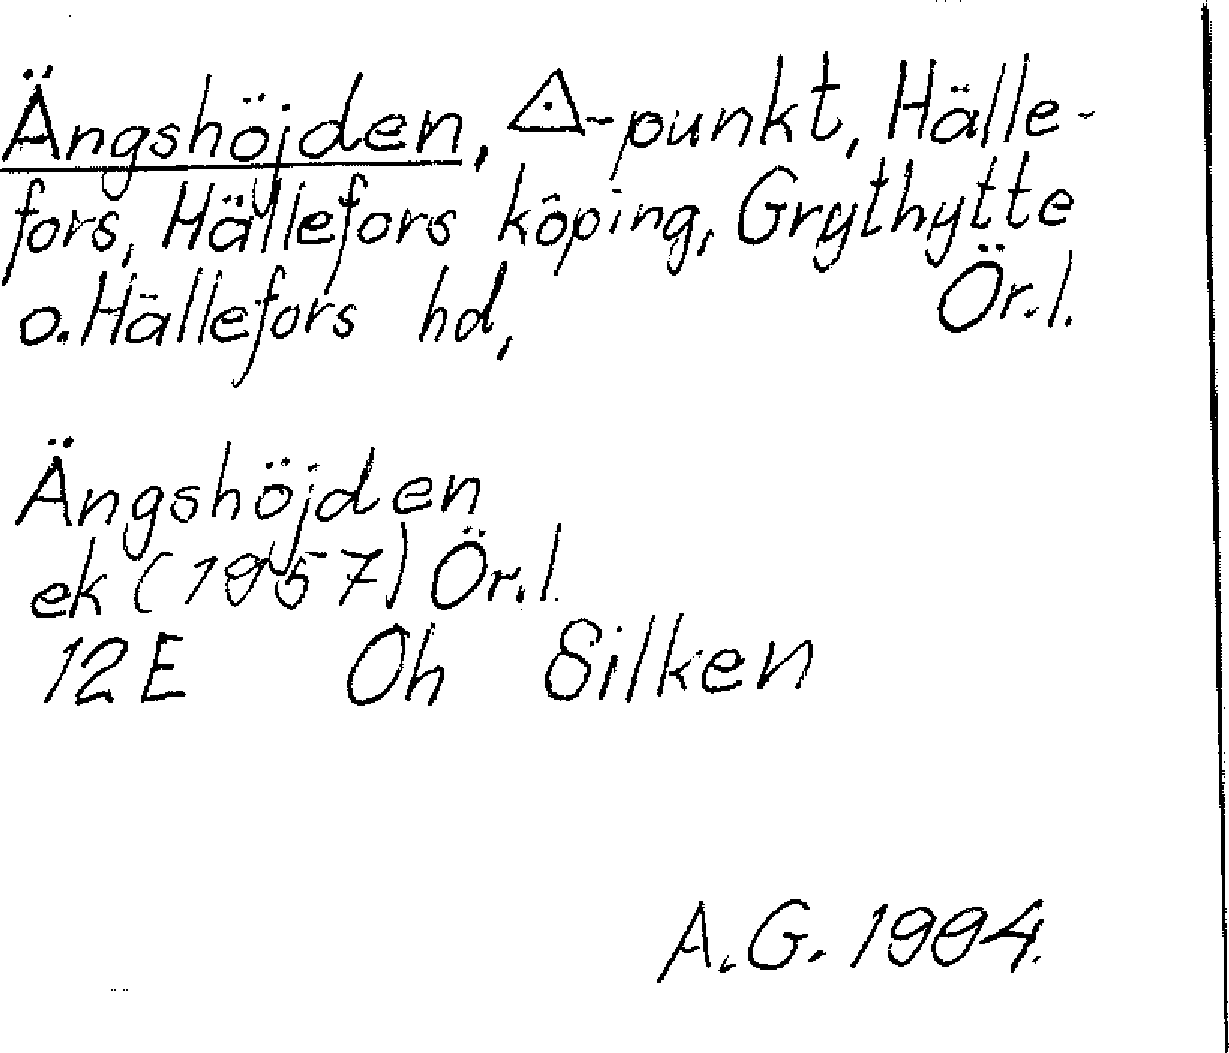 Ängshöjden, △-punkt, Hälle-
fors, Hällefors köping, Grythytte
o. Hällefors hd, Ör.l.
Ängshöjden
ek (1957) Ör.l.
12E Oh Silken
A.G. 1994.